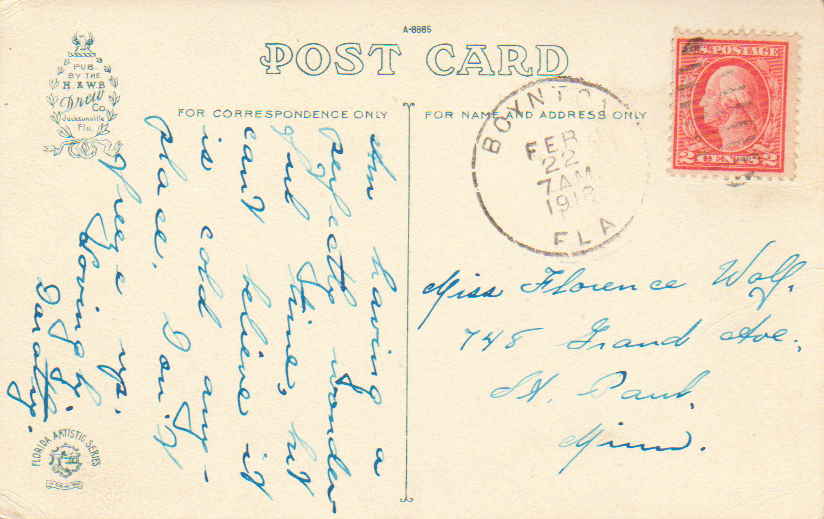 A-8885
POST CARD
PUB.
BY THE
H. & W.B.
Drew
Co.
Jacksonville
Fla.
FOR CORRESPONDENCE ONLY
FOR NAME AND ADDRESS ONLY
BOYNTON
FEB
22
7 AM
1918
FLA
U.S. POSTAGE
2 CENTS 2
Am having a
perfectly wonder
ful time, but
can't believe it
is cold any-
place. Don't
freeze up.
Lovingly,
Dorothy.
Miss Florence Wolf.
748 Grand Ave.
St. Paul,
Minn.
FLORIDA ARTISTIC SERIES